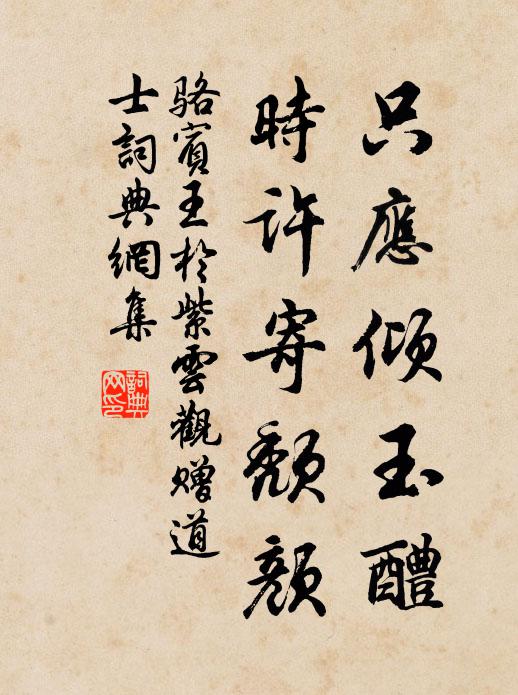 只應傾玉醴
時許寄頹顏
駱賓王於紫雲觀贈道
士詞典網集
詞典
网印